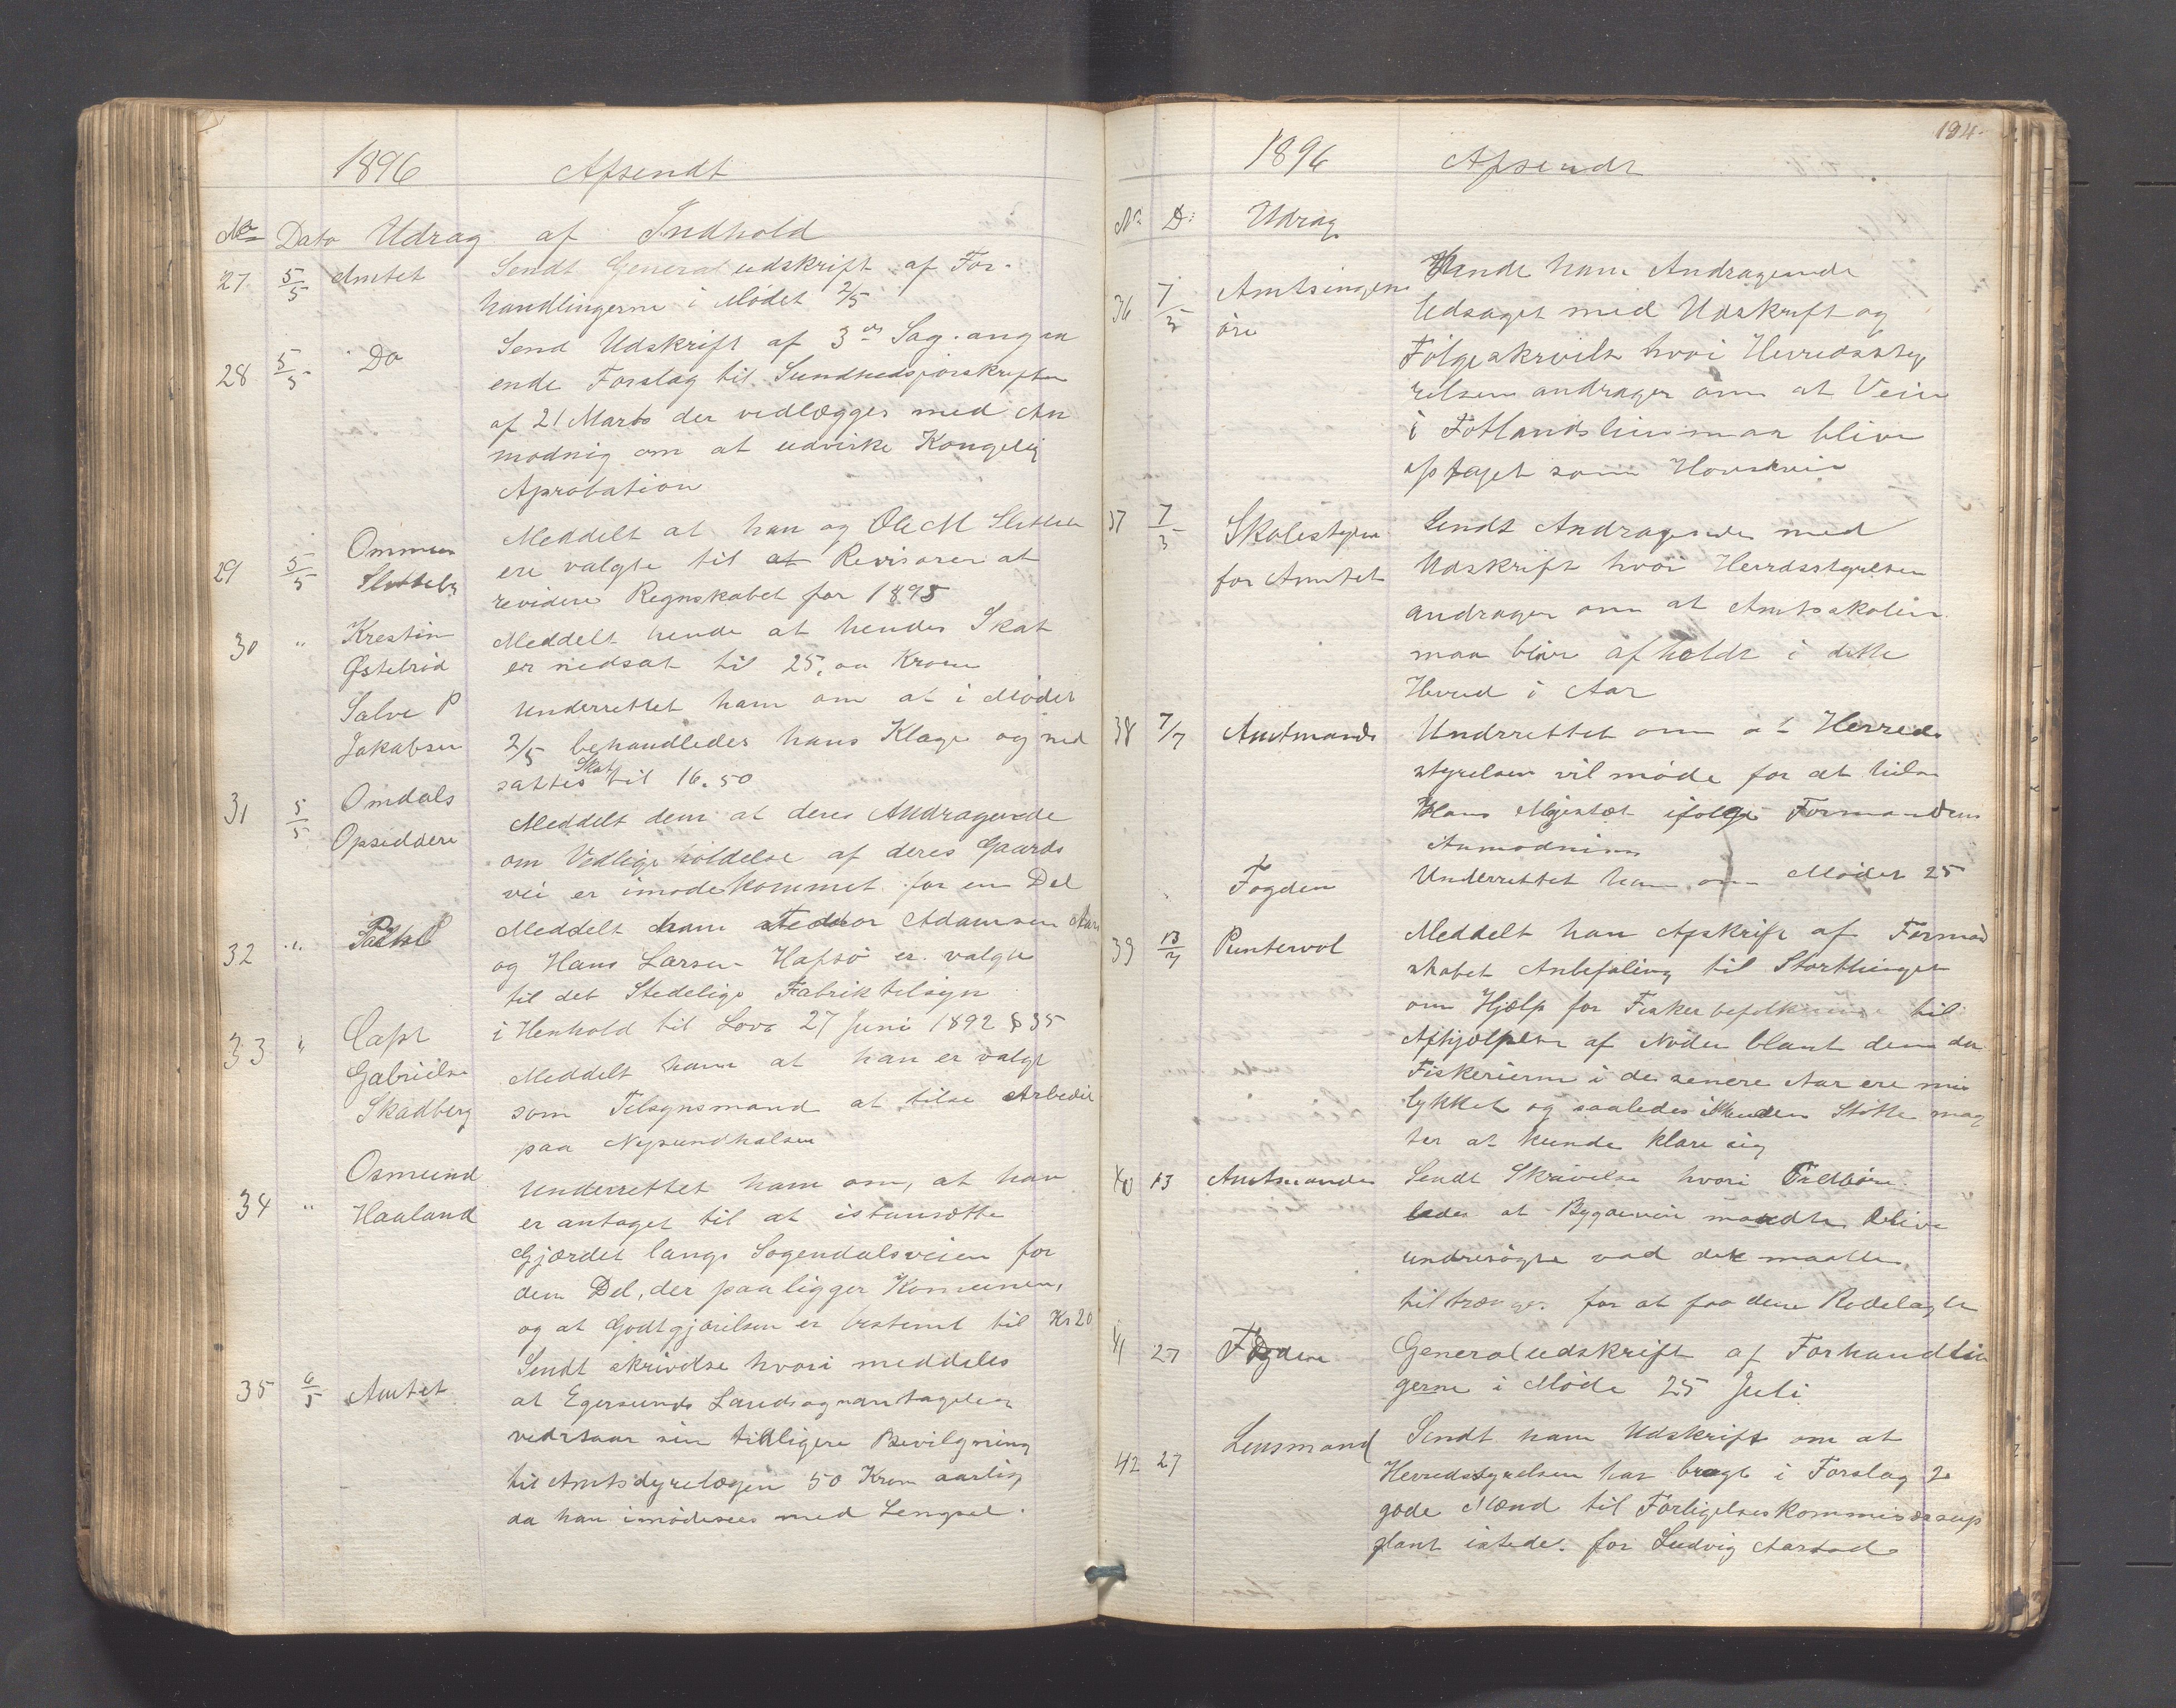 1896 Afsendt
No Dato Udrag af Indhold
27 5/5 Amtet Sendt General udskrift af For-
handlingerne i Mødet 2/5
28 5/5 Do Send Udskrift af 3die Sag. angaa
ende Forslag til Sundhedsforskrifter
af 21 Marts der vedlægges med An
modnig om at udvirke Kongelig
Aprobation
29 5/5 Ommun Slettebø Meddelt at han og Ole M Slettebø
ere valgte til at Revisorer at
revidere Regnskabet for 1895
30 " Krestin Østebrød Meddelt hende at hendes Skat
er nedsat til 25,00 Kroner
Salve P Jakobsen Underrettet ham om at i Mødet
2/5 behandledes hans Klage og ned
sattes Skat til 16.50
31 5/5 Omdals Opsiddere Meddelt dem at deres Andragende
om Vedlige holdelse af deres Gaards
vei er imødekommet for en Del
32 " Meddelt ham at Adamsen
og Hans Larsen Hafsø er valgte
til det Stedelige Fabriktilsyn
i Henhold til Lova 27 Juni 1892 § 35
33 " Capt Gabrielsen Skadberg Meddelt ham at han er valgt
som Tilsynsmand at tilse Arbedet
paa Nysundhalsen
34 " Osmund Haaland Underrettet ham om, at han
er antaget til at istansætte
Gjærdet langs Sogendalsveien for
den Del, der paaligger Komunen,
og at Godtgjørelsen er bestemt til Kr 20
35 6/5 Amtet Sendt skrivelse hvori meddeles
at Egersunds Landsogn antagelsen
vedstaar sin tidligere Bevilgning
til Amtsdyrelægen 50 Kron aarlig
da han imødesees med Lengsel.
194.
1896 Afsendt
No D: Udrag
36 7/5 Amtsingeniøre Sende ham Andragende
Udsaget med Udskrift og
Følgeskrivelse hvori Herredssty
relsen andrager om at Veien
i Fotlandslien maa blive
optaget som Hovedvei
37 7/5 Skolestyre for Amtet Sendt Andragende med
Udskrift hvori Herredsstyrelsen
andrager om at Amtsskolen
maa blive afholdt i dette
Herred i Aar
38 7/7 Amtmande Undrrettet om at Herreds
styrelsen vil møde for at hilse
Hans Majestæt ifølge Formandens
Anmodning
Fogden Underrettet ham om Mødet 25
39 13/7 Puntervol Meddelt han Afskrift af Formand
skabet Anbefaling til Storthinget
om Hjælp for Fiskerbefolkningen til
Afhjælpelse af Nøden blant dem da
Fiskerierne i de senere Aar ere mis
lykket og saaledes uden Støtte mag
ter at kunde klare sig
40 13 Amtmanden Sendt Skrivelse hvori
at Bygdeveie maatte blive
undersøgte vad det maatte
tiltrænges for at faa dem Rodelagte
41 27 Fogden Generaludskrift af Forhandlin
gerne i Møde 25 Juli
42 27 Lensmand Sendt ham Udskrift om at
Herredsstyrelsen har bragt i Forslag 2
gode Mænd til Forligelseskommisærsup
plant istedet for Ludvig Aarstad